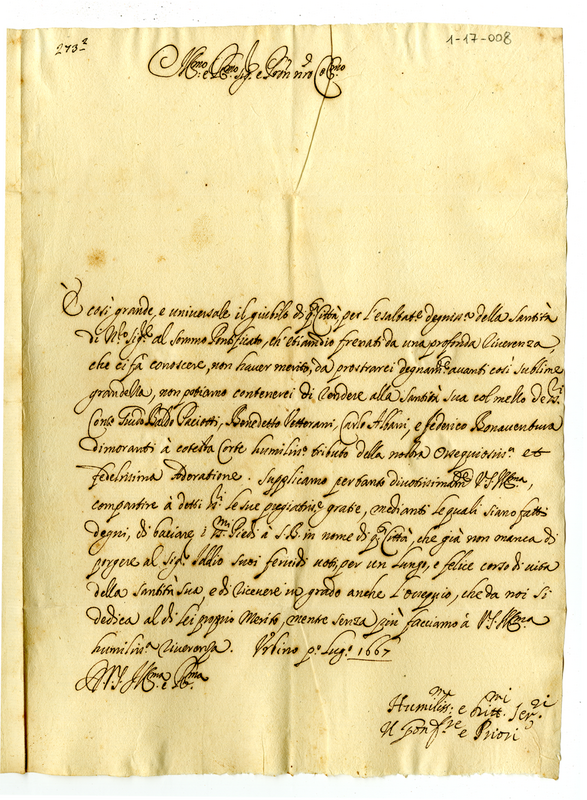 273.2
1-17-008
Emo: e Rmo: Sig.r e Pron nro Colmo:
È così grande, e universale il giubilo di q.ta Città, per l'esaltat.e degniss.a della Santità
di N.ro Sig.re al Sommo Pontificato, ch'etiandio frenati da una profonda riverenza,
che ci fa conoscere, non haver merito, da prostrarci degnam.te avanti così sublime
grandezza, non potiamo contenerci di rendere alla Santità Sua col mezzo de
Con.ti Guido Baldo Paciotti, Benedetto Vetterani, Carlo Albani, e federico Bonaventura
dimoranti à cotesta Corte humiliss.o tributo della nostra Ossequiosiss.a et
fedelissima Adoratione. Supplicamo pertanto divotissimam.te V.S. Ema,
compartire à detti le sue pregiatiss.e gratie, medianti le quali siano fatti
degni, di baciare i S.mi Piedi à S.B. in nome di q.ta Città, che già non manca di
porgere al Sig.r Iddio suoi fervidi voti, per un lungo, e felice corso di vita
della Santità Sua, e di ricevere in grado anche l'ossequio, che da noi si
dedica al di lei proppio Merito, mentre senza più facciamo à V.S. Ema
humiliss.a riverenza. Urbino p.o Lug.o 1667
D V.S. Ema e Rma
Humiliss:mi e Devott.mi Ser.ri
Il Gonf.re e Priori